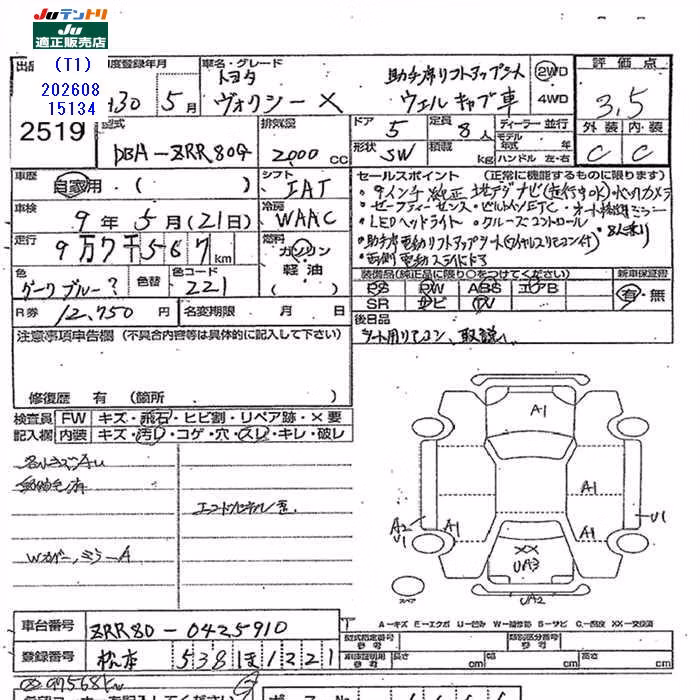 JUテントリ
JU
適正販売店
(T1)
202608
15134
2519
度登録年月
H30 5月
車名・グレード
トヨタ
ヴォクシー X
助手席リフトアップシート
ウェルキャブ車
2WD
4WD
評価点
3,5
外装 内装
C C
型式
DBA-ZRR80G
排気量
2000 cc
ドア
5
定員
8人
ディーラー 並行
モデル年式 年
形状
SW
積載
kg
ハンドル 左・右
車歴
自家用・( )
シフト
IAT
車検
9年5月(21日)
冷房
WAAC
走行
9万7千567km
燃料
ガソリン
軽油
色
ダークブルー?
色替
色コード
221
R券
12,750円
名変期限 月 日
セールスポイント (正常に機能するものに限ります)
・9インチ純正地デジナビ(走行中OK)・バックカメラ
・セーフティーセンス・ビルトインETC・オート格納ミラー
・LEDヘッドライト・クルーズコントロール・8人乗り
・助手席電動リフトアップシート(ワイヤレスリモコン付)
・両側電動スライドドア
装備品(純正品に限り○をつけてください)
PS PW ABS エアB
SR ナビ TV
新車保証書
有・無
後日品
シート用リモコン、取説
注意事項申告欄 (不具合内容等は具体的に記入して下さい)
修復歴 有 (箇所 )
検査員記入欄
FW キズ・飛石・ヒビ割・リペア跡・×要
内装 キズ・汚れ・コゲ・穴・スレ・キレ・破レ
Wカバー,ミラーA
A1
A1
A1
A1
A2
U1
U1
XX
UA3
UA2
スペア
A-キズ E-エクボ U-凹み W-補修跡 S-サビ C-腐食 XX-交換済
車台番号
ZRR80-0425910
登録番号
松本 538 ほ 1221
型式指定番号 参考
類別区分番号 参考
車庫証明用 参考
長さ cm
幅 cm
高さ cm